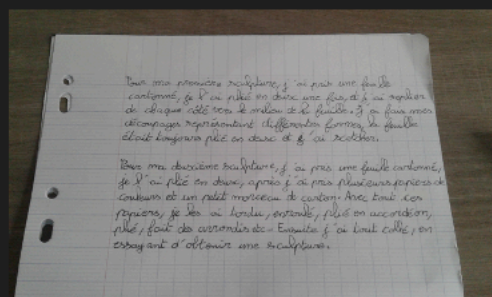 Pour ma première sculpture, j'ai pris une feuille
cartonné, je l'ai plié en deux une fois, et j'ai replier
de chaque côté vers le milieu de la feuille. J'ai fais mes
découpages représentant différentes formes, la feuille
était toujours plié en deux et j'ai scotcher.
Pour ma deuxième sculpture, j'ai pris une feuille cartonné,
je l'ai plié en deux, après j'ai pris plusieurs papiers de
couleurs et un petit morceau de carton. Avec tout ces
papiers, je les ai tordu, enroulé, plié en accordéon,
plié, fait des arrondis etc. Ensuite j'ai tout collé, en
essayant d'obtenir une sculpture.